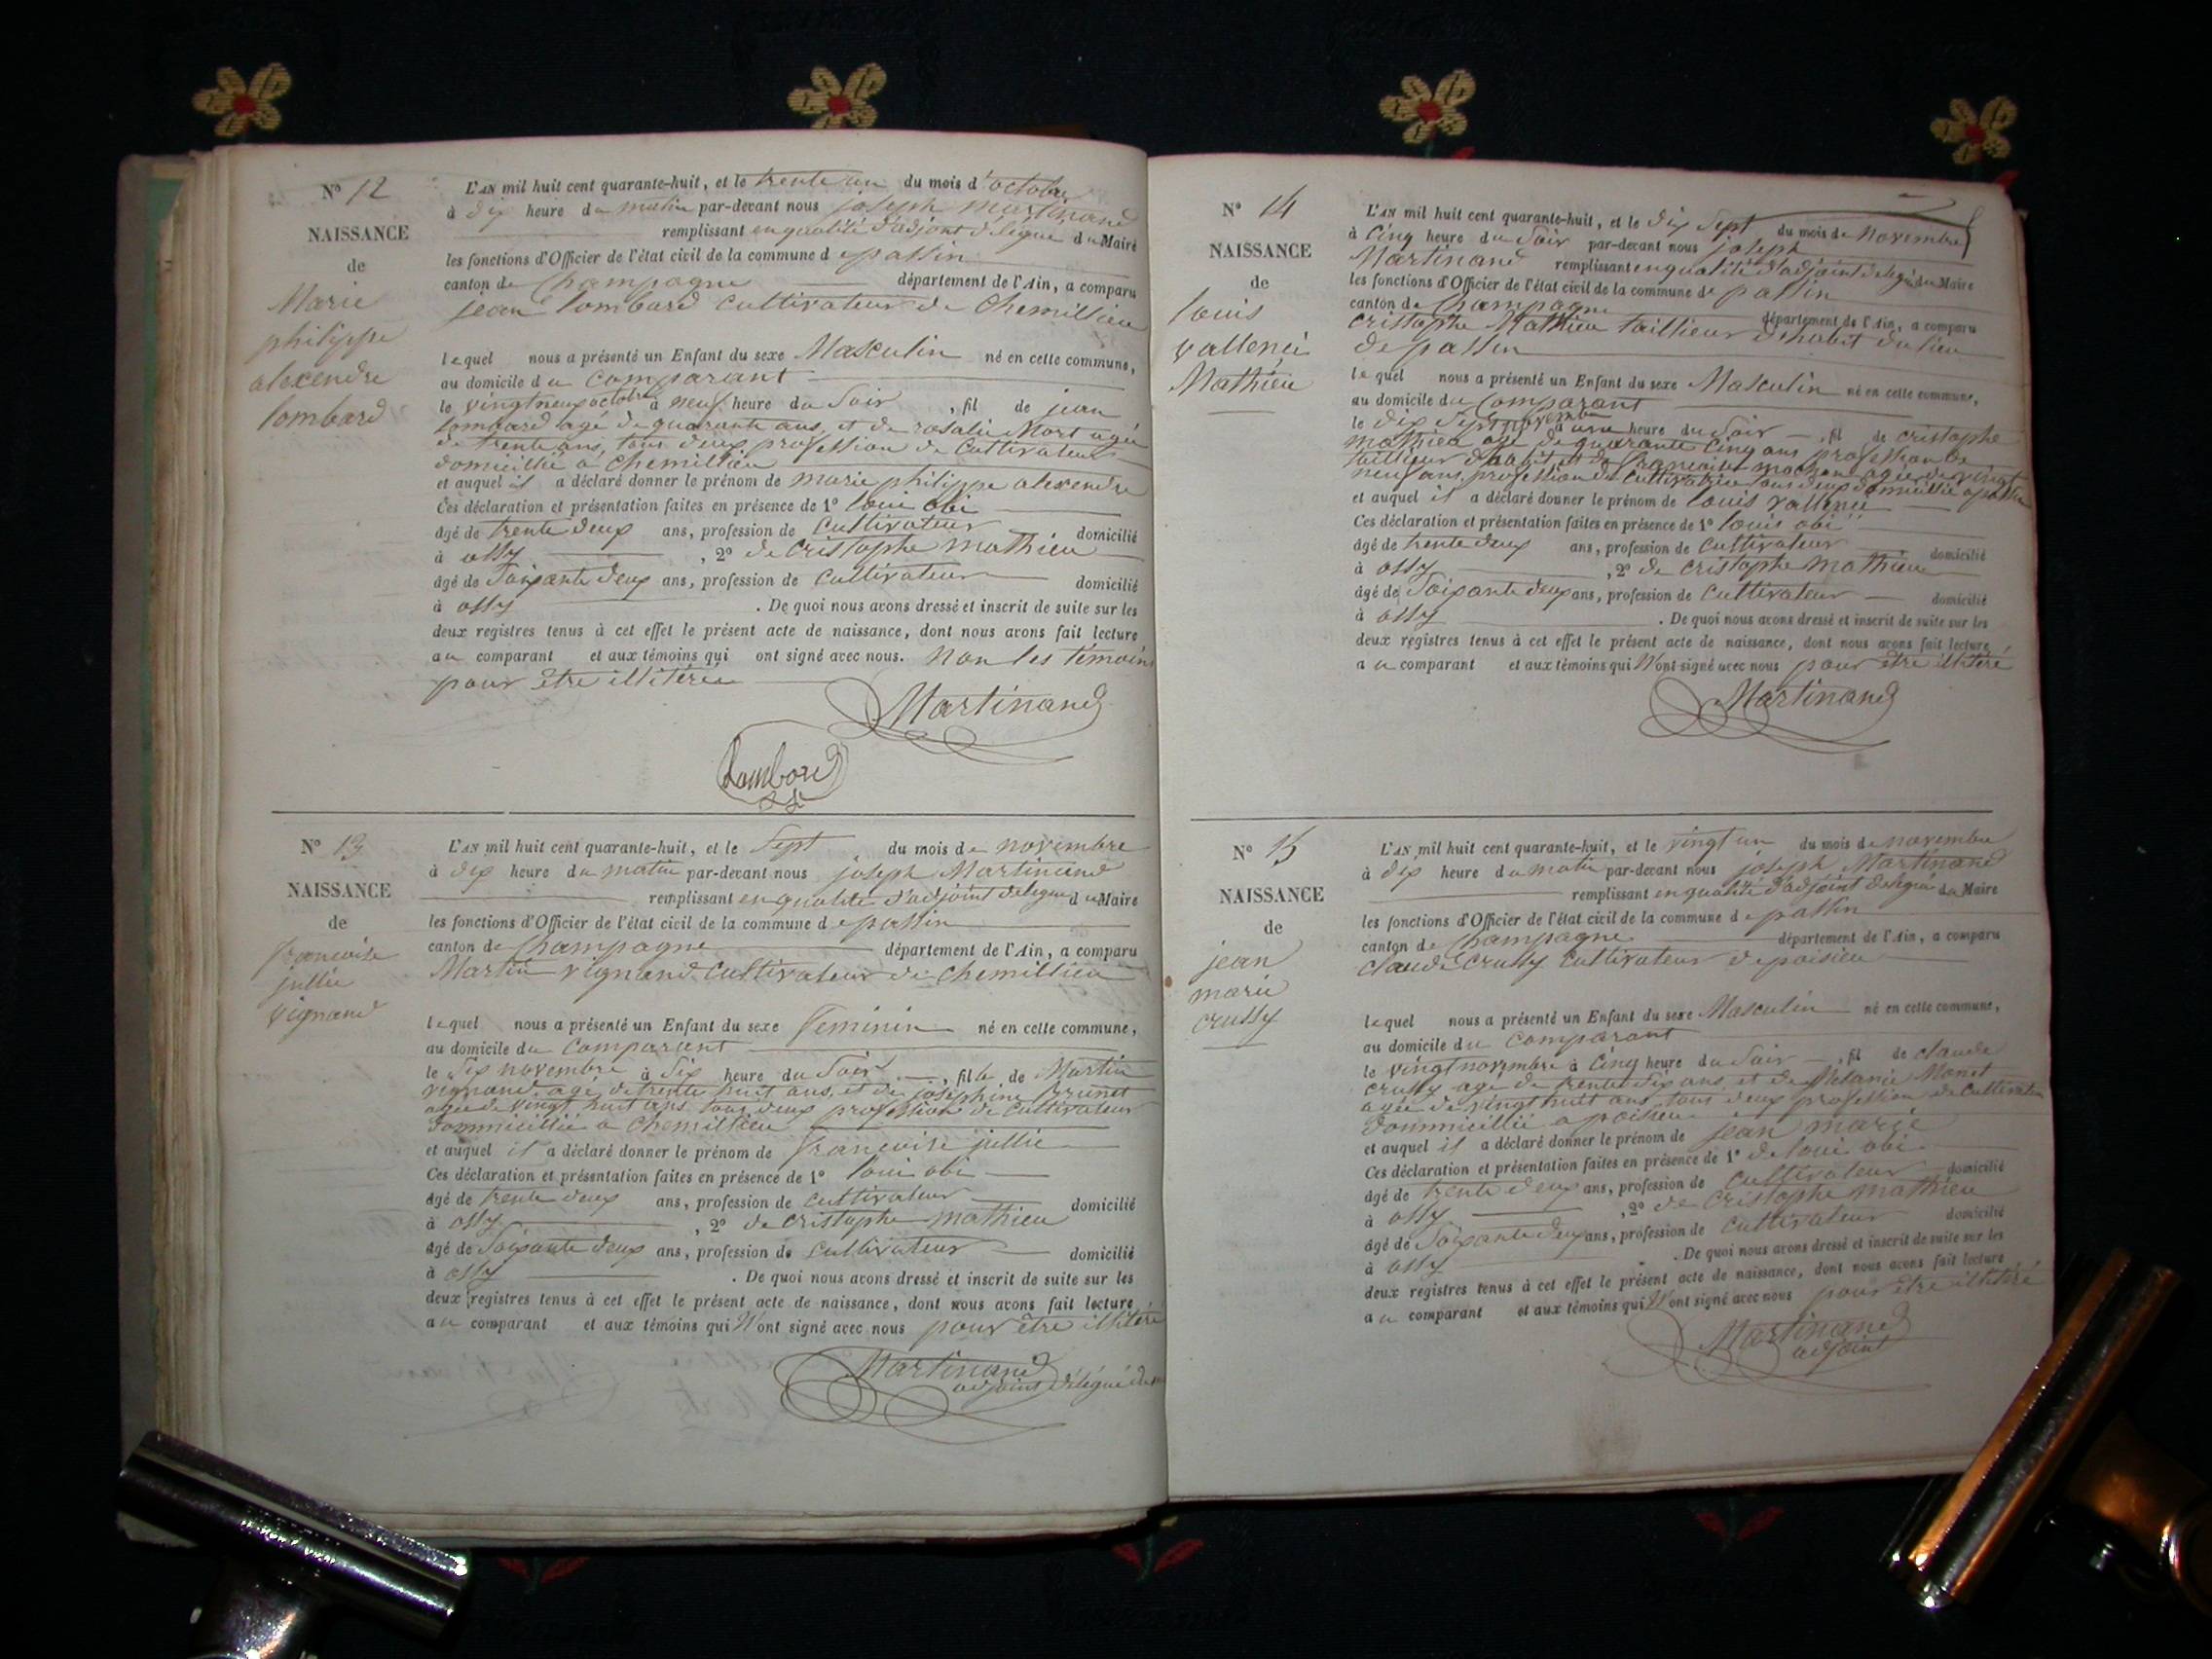 N° 12
NAISSANCE
de
Marie
philippe
alexendre
lombard
L'AN mil huit cent quarante-huit, et le trente un du mois d'octobre
à dix heure du matin par-devant nous joseph Martinand
remplissant en qualité d'adjoint délégué du Maire
les fonctions d'Officier de l'état civil de la commune de passin
canton de Champagne département de l'Ain, a comparu
jean lombard cultivateur de Chemillieu
lequel nous a présenté un Enfant du sexe Masculin né en cette commune,
au domicile du comparant
le vingt neuf octobre à neuf heure du Soir, fil de jean
lombard agé de quarante ans, et de rosalie Mort agée
de trente ans, tous deux profession de Cultivateur
domicillié à Chemillieu
et auquel il a déclaré donner le prénom de marie philippe alexendre
Ces déclaration et présentation faites en présence de 1° loui obi
âgé de trente deux ans, profession de Cultivateur domicilié
à ossy, 2° de cristophe mathieu
âgé de Soixante deux ans, profession de cultivateur domicilié
à ossy. De quoi nous avons dressé et inscrit de suite sur les
deux registres tenus à cet effet le présent acte de naissance, dont nous avons fait lecture
au comparant et aux témoins qui ont signé avec nous. Non les témoins
pour être illitérée
Martinand
Lombard
N° 13
NAISSANCE
de
francoise
jullie
vignand
L'AN mil huit cent quarante-huit, et le Sept du mois de novembre
à dix heure du matin par-devant nous joseph Martinand
remplissant en qualité d'adjoint délégué du Maire
les fonctions d'Officier de l'état civil de la commune de passin
canton de Champagne département de l'Ain, a comparu
Martin vignand Cultivateur de Chemillieu
lequel nous a présenté un Enfant du sexe feminin né en cette commune,
au domicile du Comparant
le Six novembre à Six heure du Soir, fille de Martin
vignand agé de trente huit ans, et de joséphine brunet
agée de vingt huit ans tous deux profession de Cultivateur
dommicillié a Chemillieu
et auquel il a déclaré donner le prénom de francoise jullie
Ces déclaration et présentation faites en présence de 1° loui obi
âgé de trente deux ans, profession de cultivateur domicilié
à ossy, 2° de cristophe mathieu
âgé de Soixante deux ans, profession de Cultivateur domicilié
à ossy. De quoi nous avons dressé et inscrit de suite sur les
deux registres tenus à cet effet le présent acte de naissance, dont nous avons fait lecture
au comparant et aux témoins qui N'ont signé avec nous pour être illitéré
Martinand
adjoint délégué
N° 14
NAISSANCE
de
louis
vallenei
Mathieu
L'AN mil huit cent quarante-huit, et le dix Sept du mois de Novembre
à Cinq heure du Soir par-devant nous joseph
Martinand remplissant en qualité d'adjoint délégué du Maire
les fonctions d'Officier de l'état civil de la commune de passin
canton de Champagne département de l'Ain, a comparu
cristophe Mathieu taillieur d'habit du lieu
de passin
lequel nous a présenté un Enfant du sexe Masculin né en cette commune,
au domicile du Comparant
le dix Sept novembre à une heure du Soir, fil de cristophe
mathieu agé de quarante Cinq ans profession de
taillieur d'habit et de francoise agée de vingt
neuf ans, profession de Cultivatrice tous deux domicillié a passin
et auquel il a déclaré donner le prénom de louis vallenei
Ces déclaration et présentation faites en présence de 1° louis obi
âgé de trente deux ans, profession de Cultivateur domicilié
à ossy, 2° de cristophe mathieu
âgé de Soixante deux ans, profession de Cultivateur domicilié
à ossy. De quoi nous avons dressé et inscrit de suite sur les
deux registres tenus à cet effet le présent acte de naissance, dont nous avons fait lecture
au comparant et aux témoins qui N'ont signé avec nous pour être illitéré
Martinand
N° 15
NAISSANCE
de
jean
marie
crussy
L'AN mil huit cent quarante-huit, et le vingt un du mois de novembre
à dix heure du matin par-devant nous joseph Martinand
remplissant en qualité d'adjoint délégué du Maire
les fonctions d'Officier de l'état civil de la commune de passin
canton de Champagne département de l'Ain, a comparu
claude crussy Cultivateur de poisieu
lequel nous a présenté un Enfant du sexe Masculin né en cette commune,
au domicile du comparant
le vingt novembre à Cinq heure du Soir, fil de claude
crussy agé de trente Six ans, et de Melanie Monet
agée de vingt huit ans, tous deux profession de Cultivateur
dommicillié a poisieu
et auquel il a déclaré donner le prénom de jean marie
Ces déclaration et présentation faites en présence de 1° de loui obi
âgé de trente deux ans, profession de Cultivateur domicilié
à ossy, 2° de cristophe mathieu
âgé de Soixante deux ans, profession de Cultivateur domicilié
à ossy. De quoi nous avons dressé et inscrit de suite sur les
deux registres tenus à cet effet le présent acte de naissance, dont nous avons fait lecture
au comparant et aux témoins qui N'ont signé avec nous pour être illitéré
Martinand
adjoint